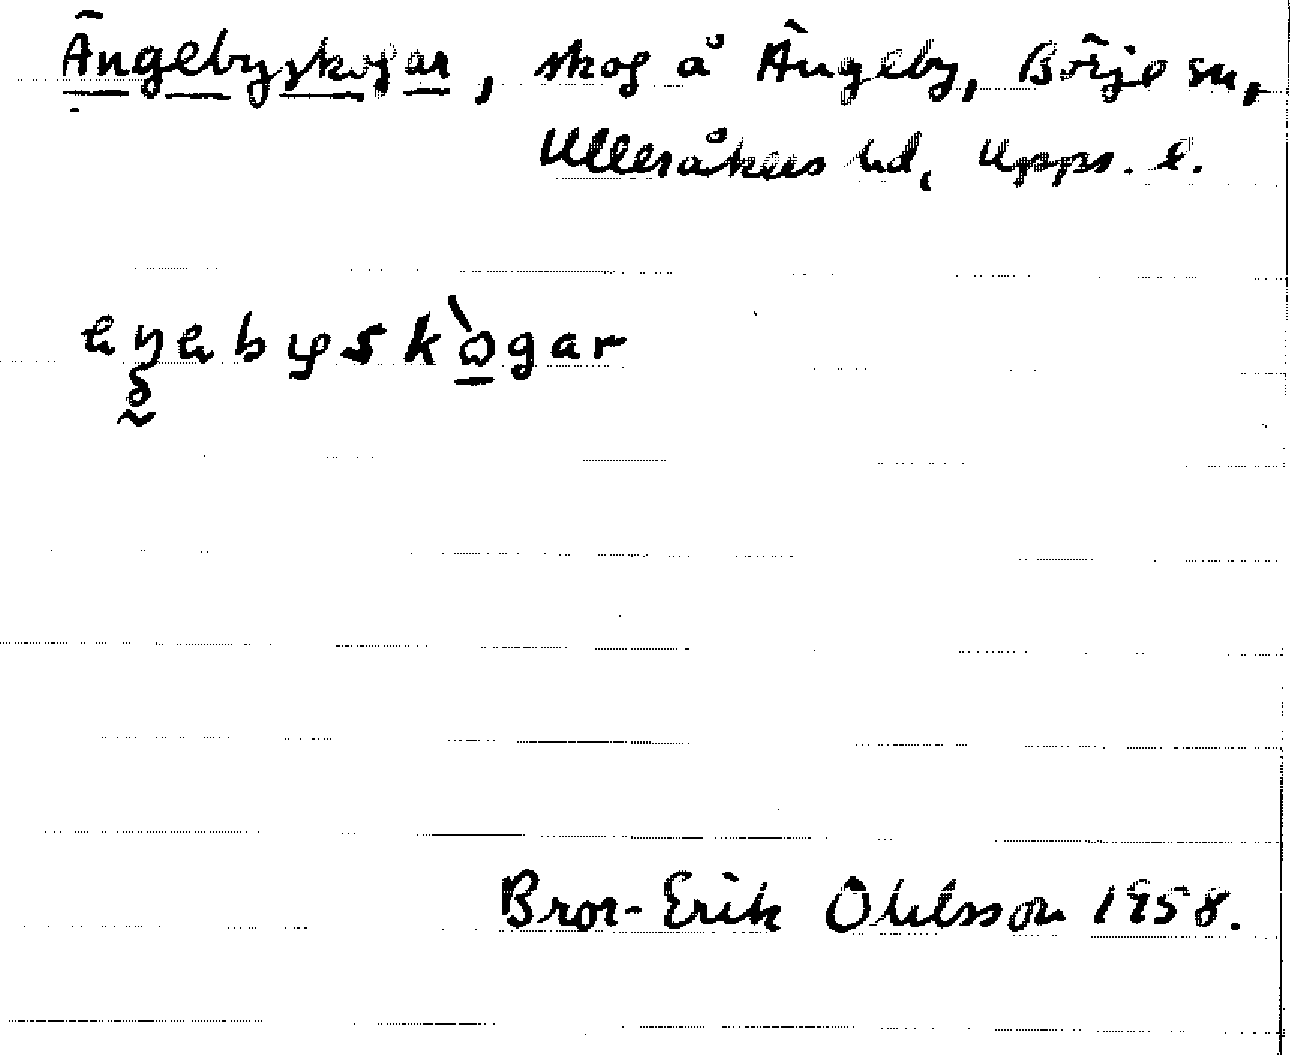 Ängebyskogar, skog å Ängeby, Börje sn,
Ulleråkers hd, Upps. l.
eŋebyskògar
Bror-Erik Ohlsson 1958.